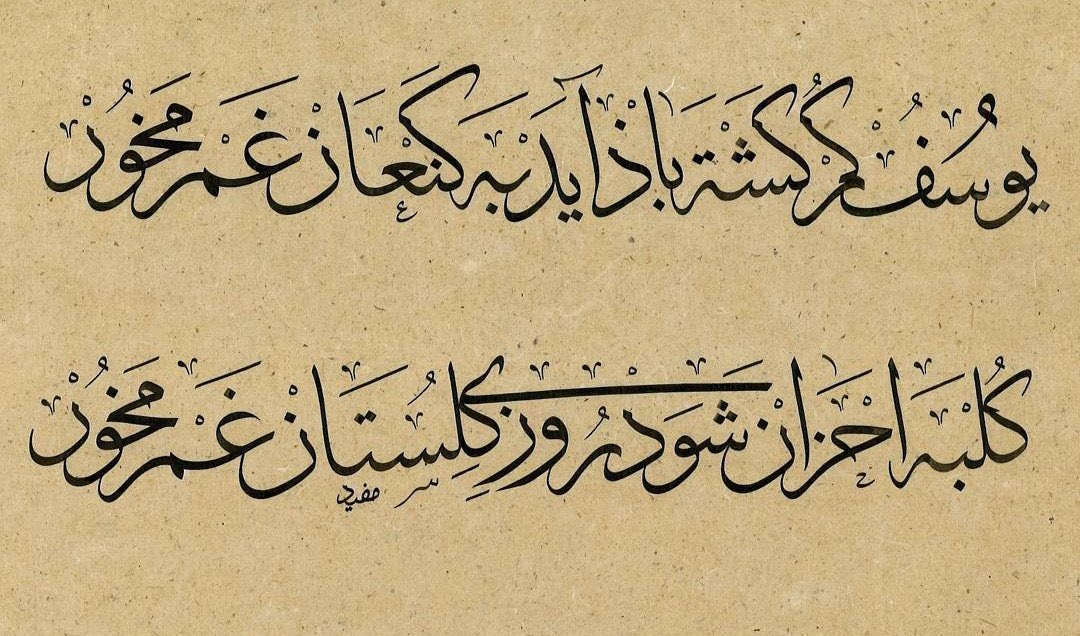 یوسف گم گشته باز آید به کنعان غم مخور
کلبه احزان شود روزی گلستان غم مخور
مفید